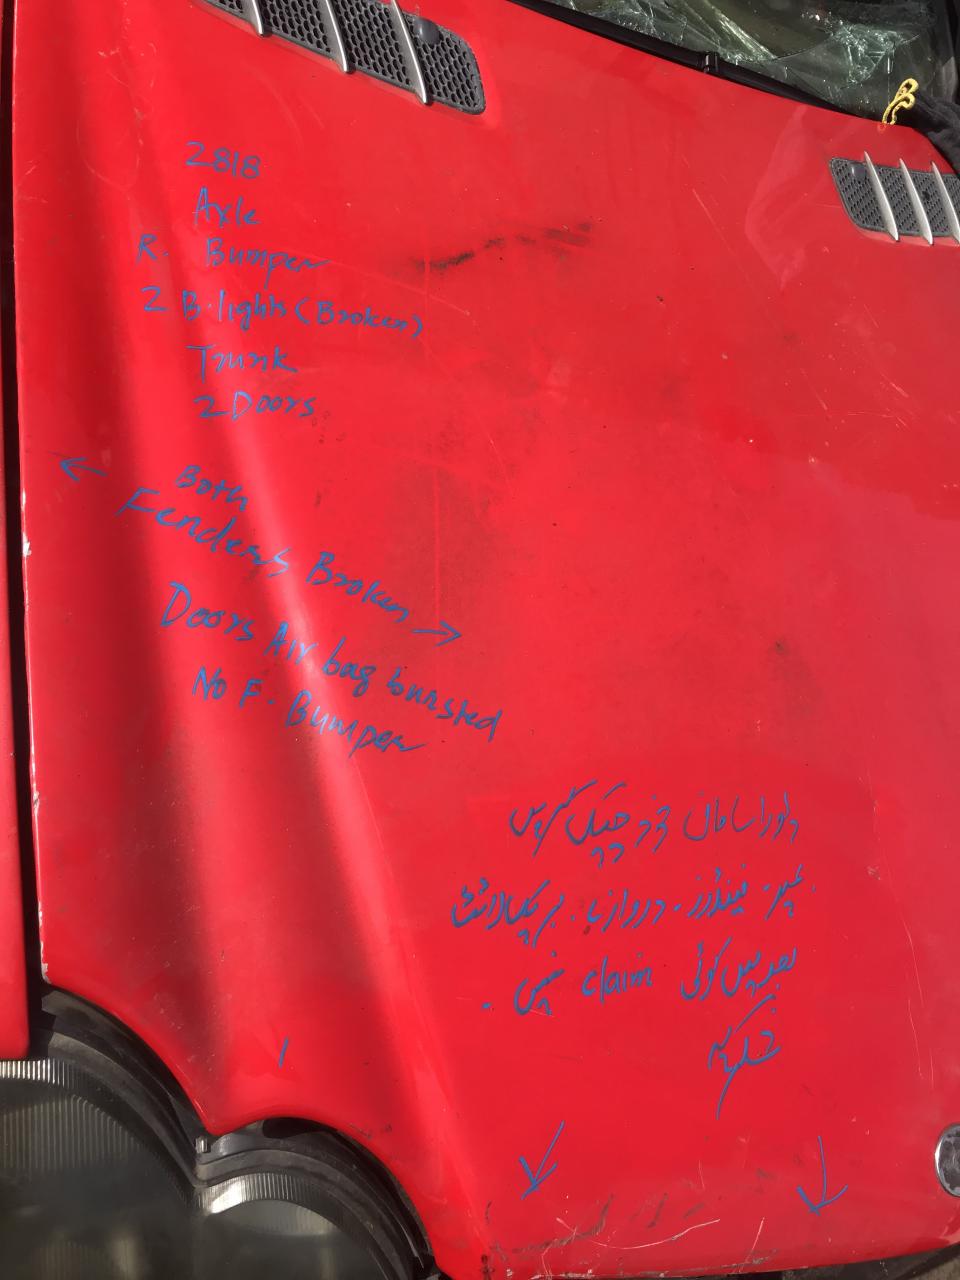 2818
Axle
R. Bumper
2 B.lights (Broken)
Trunk
2 Doors
Both
Fenders Broken
Doors Air bag bursted
No F. Bumper
سامان خود چیک کریں
فینڈرز - دروازے
بعد میں کوئی claim نہیں -
شکریہ